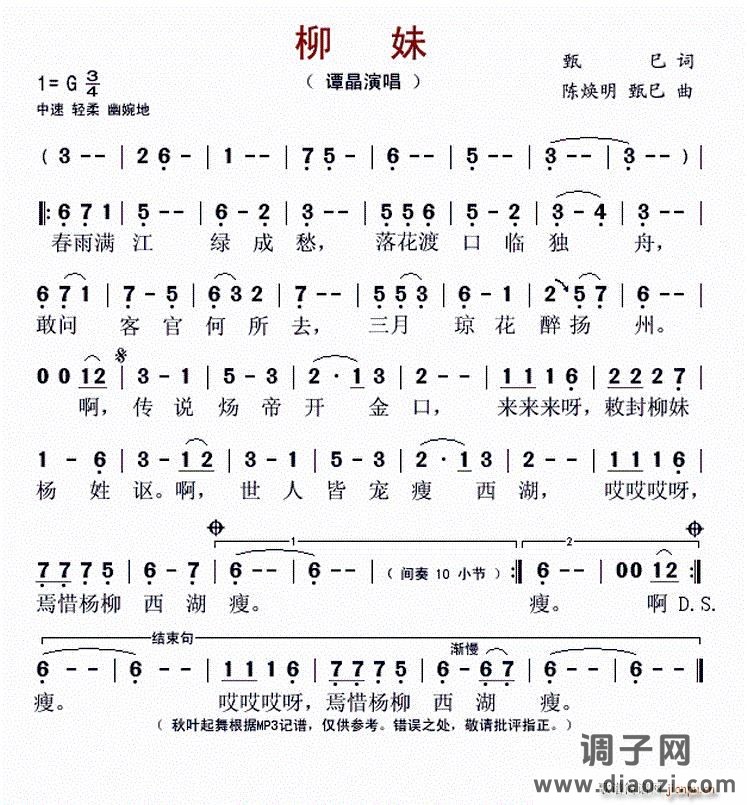 柳 妹
（ 谭晶演唱 ）
甄 巳 词
陈焕明 甄巳 曲
1= G 3/4
中速 轻柔 幽婉地
( 3 - - | 2 6 - | 1 - - | 7 5 - | 6 - - | 5 - - | 3 - - | 3 - - ) |
‖: 6 7 1 | 5 - - | 6 - 2 | 3 - - | 5 5 6 | 5 - 2 | 3 - 4 | 3 - - |
春雨满 江 绿 成 愁， 落花渡 口 临 独 舟，
6 7 1 | 7 - 5 | 6 3 2 | 7 - - | 5 5 3 | 6 - - | 2 5 7 | 6 - - |
敢问 客 官 何 所 去， 三月 琼 花 醉 扬 州。
0 0 1 2 | 3 - 1 | 5 - 3 | 2 · 1 3 | 2 - - | 1 1 1 6 | 2 2 2 7 |
啊， 传 说 炀 帝 开 金 口， 来来来呀，敕封柳妹
1 - 6 | 3 - 1 2 | 3 - 1 | 5 - 3 | 2 · 1 3 | 2 - - | 1 1 1 6 |
杨 姓 讴。啊， 世 人 皆 宠 瘦 西 湖， 哎哎哎呀，
1 2
7 7 7 5 | 6 - 7 | 6 - - | 6 - - | ( 间奏 10 小节 ) :‖ 6 - - | 0 0 1 2 :‖
焉惜杨柳 西 湖 瘦。 瘦。 啊 D.S.
结束句 渐慢
6 - - | 6 - - | 1 1 1 6 | 7 7 7 5 | 6 - 6 7 | 6 - - | 6 - - ‖
瘦。 哎哎哎呀，焉惜杨柳 西 湖 瘦。
（ 秋叶起舞根据MP3记谱，仅供参考。错误之处，敬请批评指正。）
调子网
www.diaozi.com